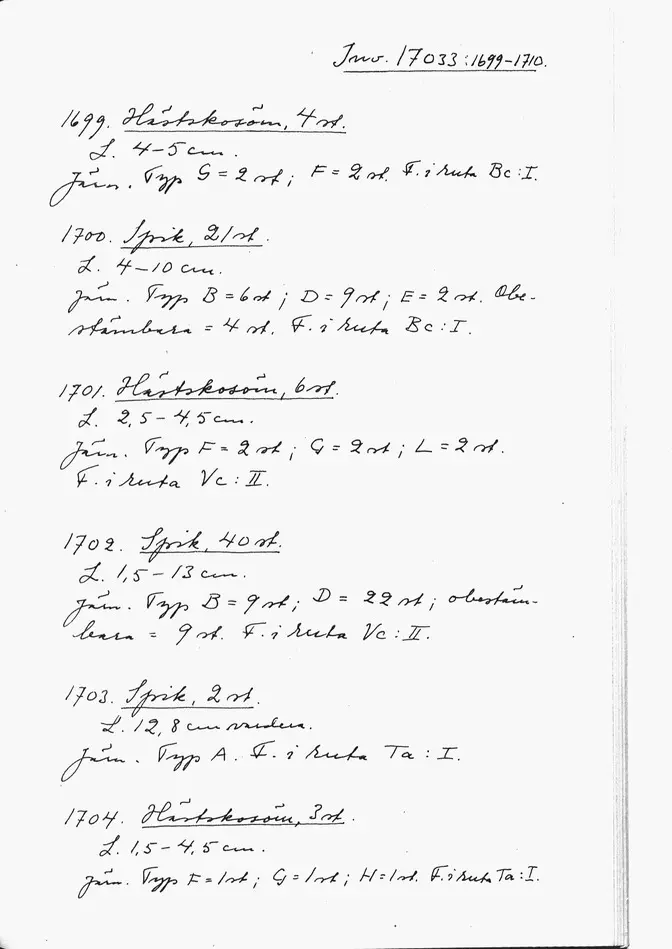 Inv. 17033:1699-1710.
1699. Hästskosöm, 4 st.
L. 4-5 cm.
Järn. Typ G = 2 st; F = 2 st. F. i ruta Bc:I.
1700. Spik, 21 st.
L. 4-10 cm.
Järn. Typ B = 6 st; D = 9 st; E = 2 st. Obe-
stämbara = 4 st. F. i ruta Bc:I.
1701. Hästskosöm, 6 st.
L. 2,5-4,5 cm.
Järn. Typ F = 2 st; G = 2 st; L = 2 st.
F. i ruta Vc:II.
1702. Spik, 40 st.
L. 1,5-13 cm.
Järn. Typ B = 9 st; D = 22 st; obestäm-
bara = 9 st. F. i ruta Vc:II.
1703. Spik, 2 st.
L. 12,8 cm vardera.
Järn. Typ A. F. i ruta Ta:I.
1704. Hästskosöm, 3 st.
L. 1,5-4,5 cm.
Järn. Typ F = 1 st; G = 1 st; H = 1 st. F. i ruta Ta:I.